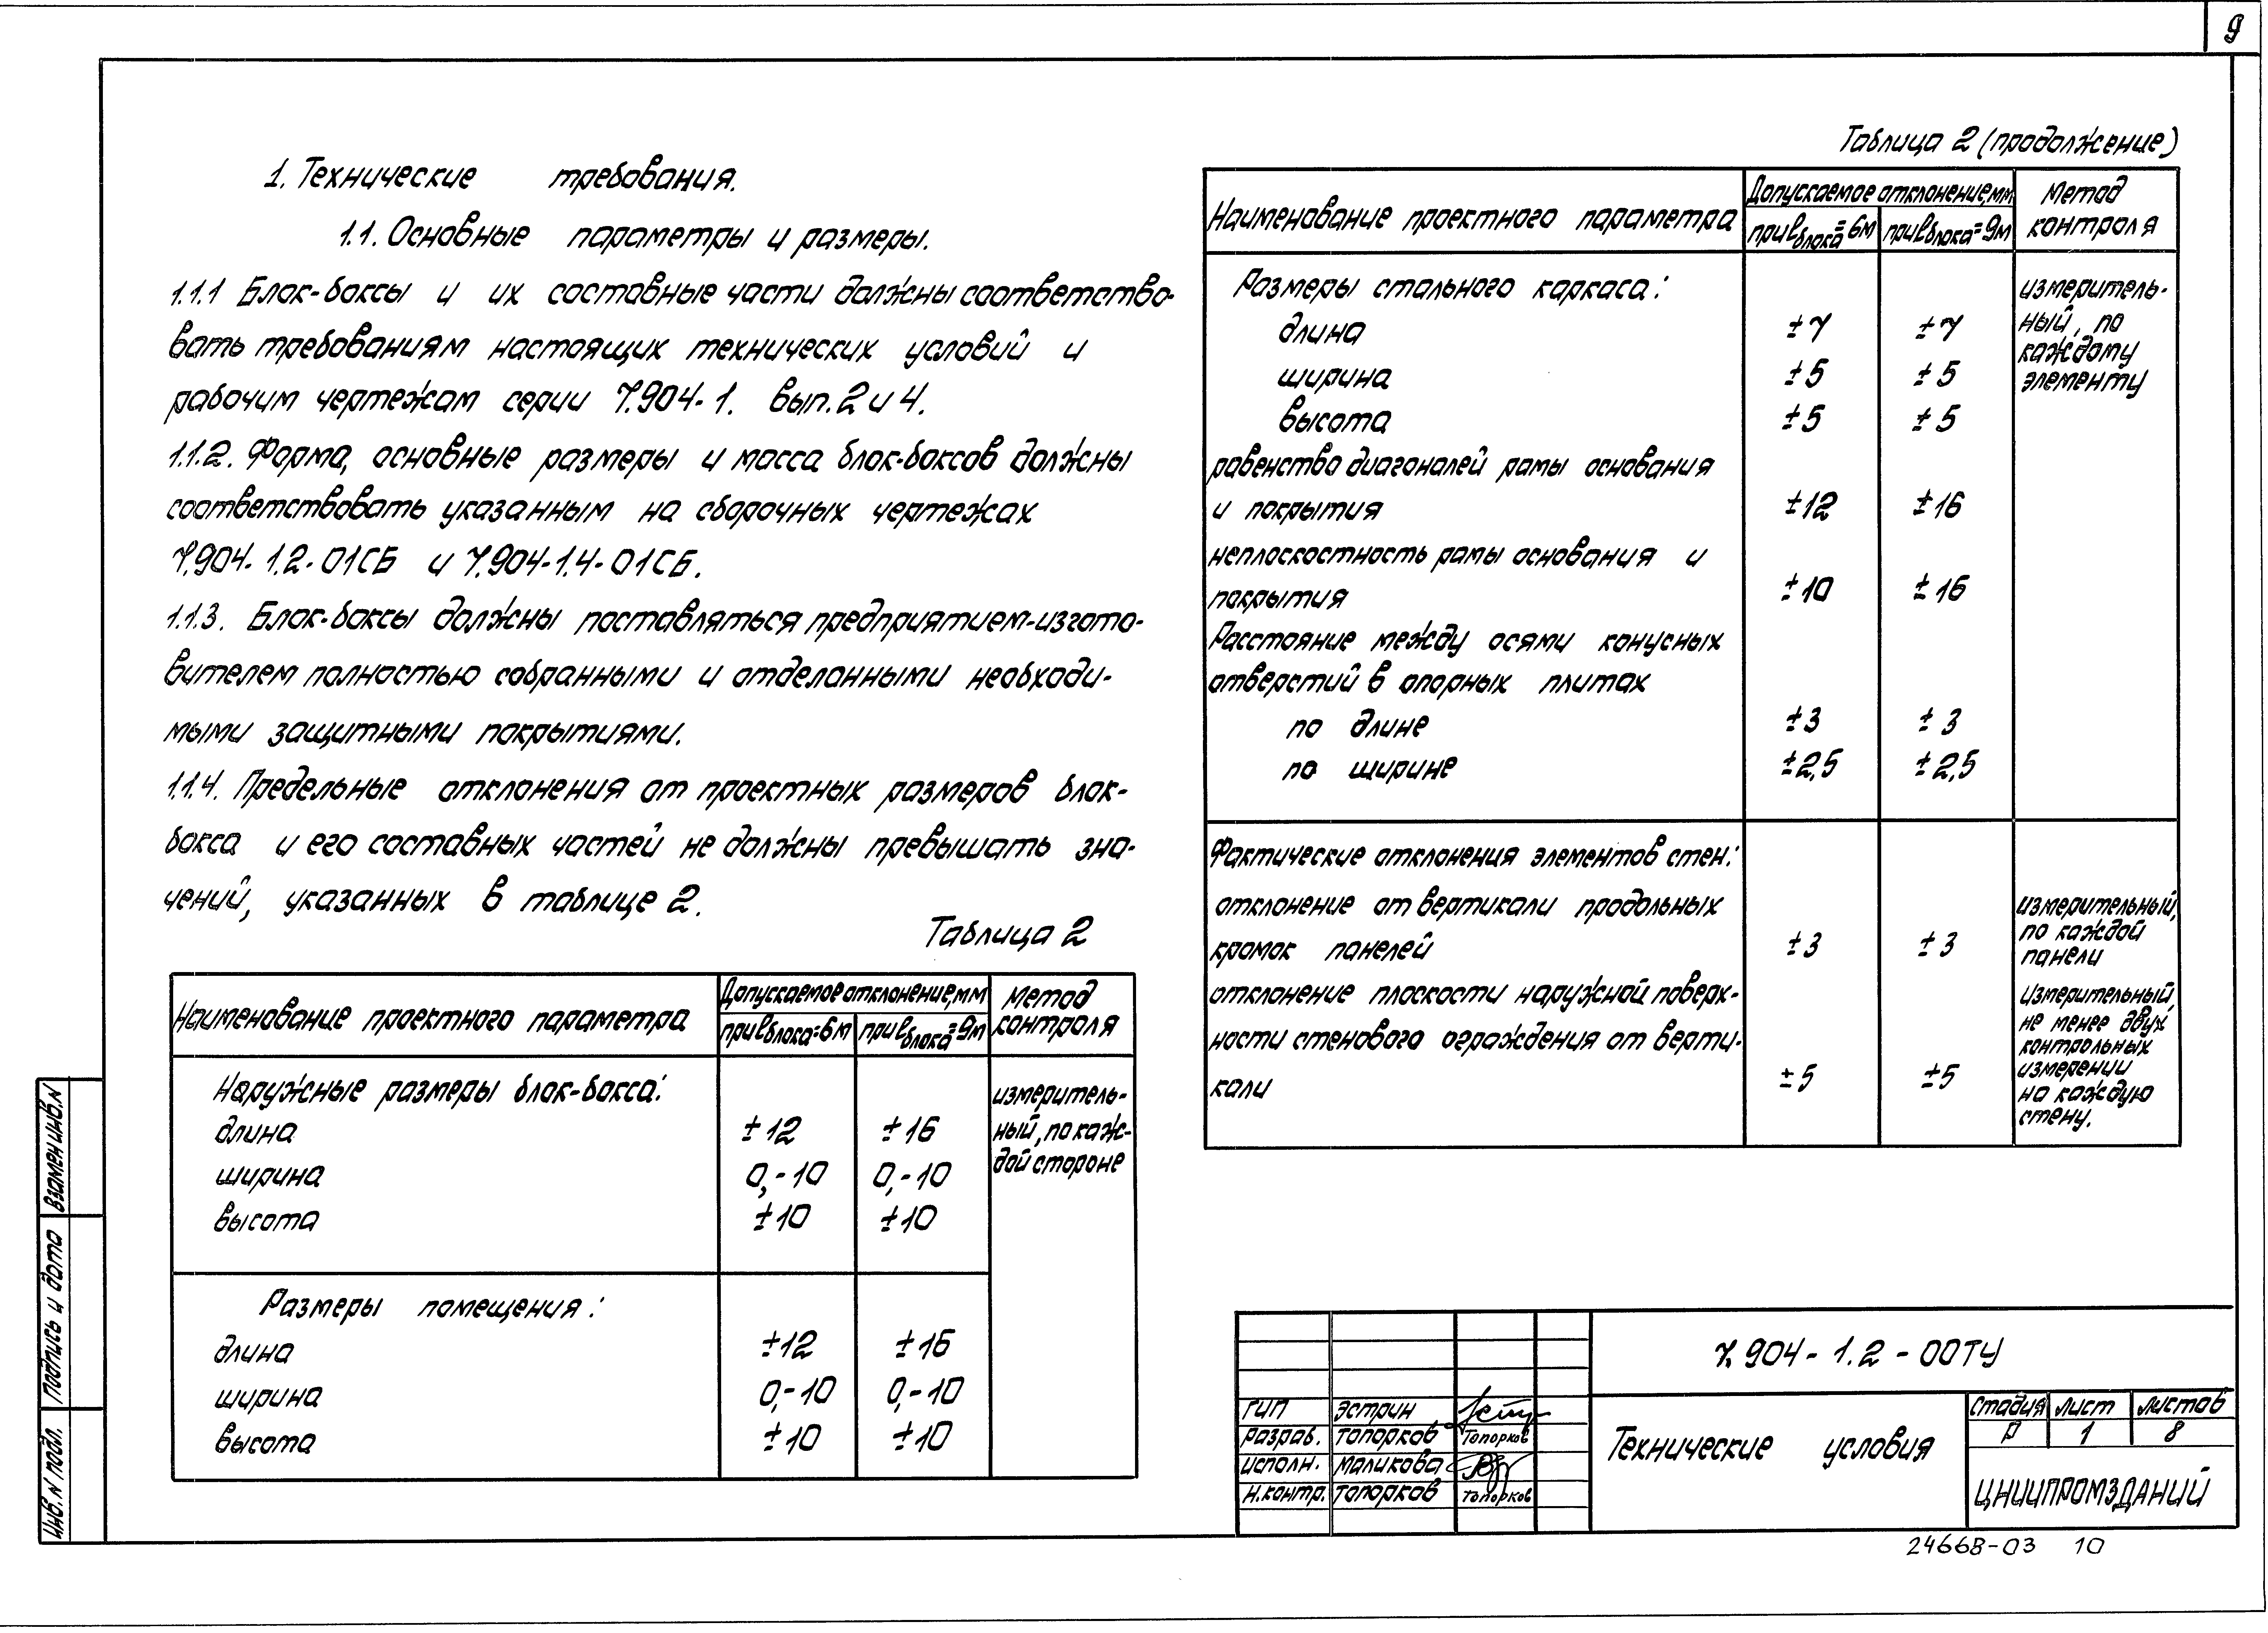 9
1. Технические требования.
1.1. Основные параметры и размеры.
1.1.1 Блок-боксы и их составные части должны соответство-
вать требованиям настоящих технических условий и
рабочим чертежам серии 7.904-1. вып. 2 и 4.
1.1.2. Форма, основные размеры и масса блок-боксов должны
соответствовать указанным на сборочных чертежах
7.904-1.2-01СБ и 7.904-1.4-01СБ.
1.1.3. Блок-боксы должны поставляться предприятием-изгото-
вителем полностью собранными и отделанными необходи-
мыми защитными покрытиями.
1.1.4. Предельные отклонения от проектных размеров блок-
бокса и его составных частей не должны превышать зна-
чений, указанных в таблице 2.
Таблица 2
Наименование проектного параметра
Допускаемое отклонение, мм
при L блока = 6м
при L блока = 9м
Метод
контроля
Наружные размеры блок-бокса:
длина ±12 ±16
ширина 0,-10 0,-10
высота ±10 ±10
измеритель-
ный, по каж-
дой стороне
Размеры помещения:
длина ±12 ±16
ширина 0,-10 0,-10
высота ±10 ±10
Таблица 2 (продолжение)
Наименование проектного параметра
Допускаемое отклонение, мм
при L блока = 6м
при L блока = 9м
Метод
контроля
Размеры стального каркаса:
длина ±7 ±7
ширина ±5 ±5
высота ±5 ±5
измеритель-
ный, по
каждому
элементу
равенство диагоналей рамы основания
и покрытия ±12 ±16
неплоскостность рамы основания и
покрытия ±10 ±16
Расстояние между осями конусных
отверстий в опорных плитах
по длине ±3 ±3
по ширине ±2,5 ±2,5
Фактические отклонения элементов стен:
отклонение от вертикали продольных
кромок панелей ±3 ±3
измерительный,
по каждой
панели
отклонение плоскости наружной поверх-
ности стенового ограждения от верти-
кали ±5 ±5
измерительный,
не менее двух
контрольных
измерении
на каждую
стену.
7.904-1.2-00ТУ
ГИП Эстрин
Разраб. Топорков Топорков
Исполн. Маликова
Н.контр. Топорков Топорков
Технические условия
стадия лист листов
Р 1 8
ЦНИИПРОМЗДАНИЙ
24668-03 10
Взамен инв.N
Подпись и дата
Инв.N подл.